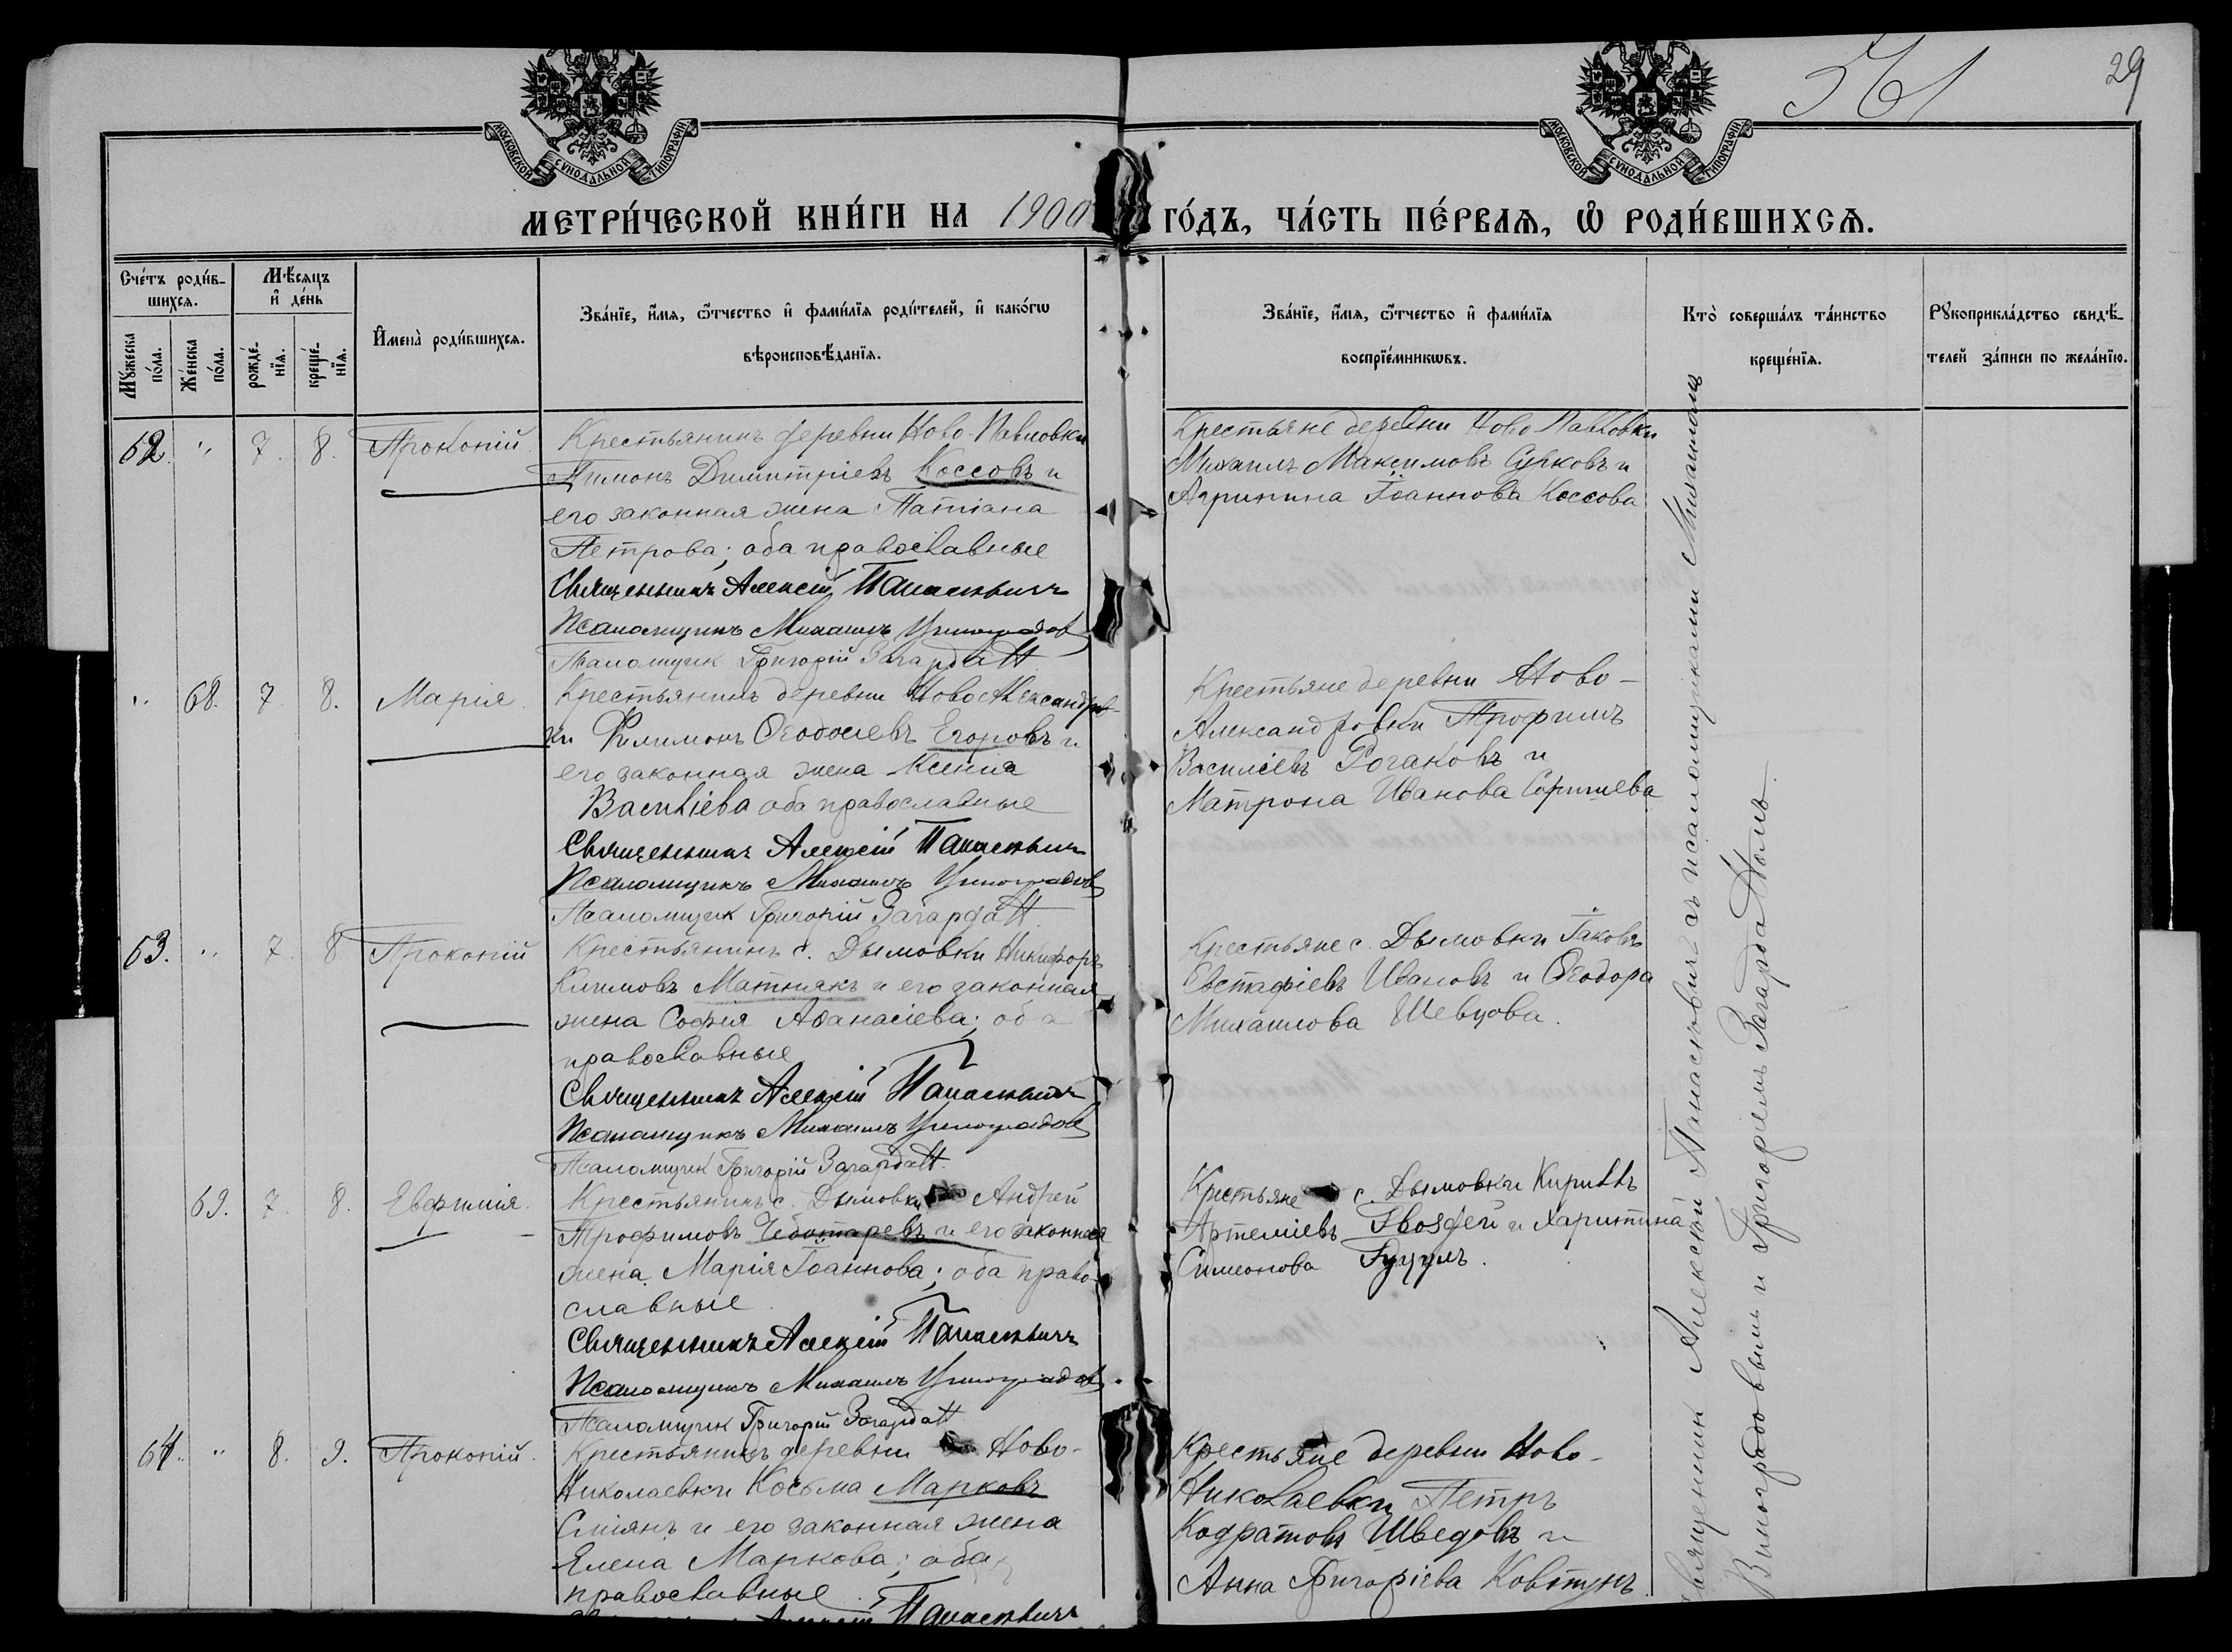 561
29
МОСКОВСКОЙ СѴНОДАЛЬНОЙ ТИПОГРАФІИ
МОСКОВСКОЙ СѴНОДАЛЬНОЙ ТИПОГРАФІИ
МЕТРИ́ЧЕСКОЙ КНИ́ГИ НА 1900 ГО́ДЪ, ЧА́СТЬ ПЕ́РВАѦ, Ѽ РОДИ́ВШИХСѦ.
Сче́тъ роди́в-
шихсѧ.
Мѣ́сѧцъ
и҆ де́нь
Мꙋ́жеска
по́ла.
Же́нска
по́ла.
рожде́-
нїѧ.
креще́-
нїѧ.
И҆мена̀ роди́вшихсѧ.
Зва́нїе, и҆́мѧ, ѻ҆́тчество и҆ фами́лїѧ роди́телей, и҆ како́гѡ
вѣроисповѣ́данїѧ.
Зва́нїе, и҆́мѧ, ѻ҆́тчество и҆ фами́лїѧ
воспрїе́мникѡвъ.
Кто̀ соверша́лъ та́инство
креще́нїѧ.
Рꙋкоприкла́дство свидѣ́-
телей за́писи по жела́нїю.
62. " 7. 8. Прокопій
Крестьянинъ деревни Ново-Павловки
Тимонъ Димитріевъ Коссовъ и
его законная жена Татіана
Петрова; оба православные
Священникъ Алексій Панаскевичъ
Псаломщикъ Михаилъ Виноградовъ
Псаломщик Григорій Загарда
Крестьяне деревни Ново Павловки
Михаилъ Максимовъ Сурковъ и
Агрипина Іоаннова Коссова
" 68. 7. 8. Марія
Крестьянинъ деревни Новоалександров-
ки Филимонъ Ѳеодосіевъ Егоровъ и
его законная жена Ксенія
Василіева оба православные
Священникъ Алексій Панаскевичъ
Псаломщикъ Михаилъ Виноградовъ
Псаломщик Григорій Загарда
Крестьяне деревни Ново-
Александровки Трофимъ
Василіевъ Рогаковъ и
Матрона Иванова
63. " 7. 8. Прокопій
Крестьянинъ с. Дымовки Никифоръ
Климовъ Матнякъ и его законная
жена Софія Аѳанасіева; оба
православные
Священникъ Алексій Панаскевичъ
Псаломщикъ Михаилъ Виноградовъ
Псаломщик Григорій Загарда
Крестьяне с. Дымовки Іаковъ
Евстафіевъ Ивановъ и Ѳеодора
Михаилова Шевцова.
69. 7. 8. Евфимія.
Крестьянинъ с. Дымовки Андрей
Трофимовъ Чеботаревъ и его законная
жена Марія Іоаннова; оба право-
славные
Священникъ Алексій Панаскевичъ
Псаломщикъ Михаилъ Виноградовъ
Псаломщик Григорій Загарда
Крестьяне с. Дымовки Кириллъ
Артеміевъ Гвоздей и Харитина
Симеонова Гуцулъ.
64. " 8. 9. Прокопій.
Крестьянинъ деревни Ново-
Николаевки Косьма Марковъ
Сміянъ и его законная жена
Елена Маркова; оба
православные
Алексій Панаскевичъ
Крестьяне деревни Ново-
Николаевки Петръ
Кодратовъ Шведовъ и
Анна Григоріева Ковтунъ.
Священник Алексѣй Панаскевич съ псаломщиками Михаиломъ
Виноградовымъ и Григоріемъ Загарда